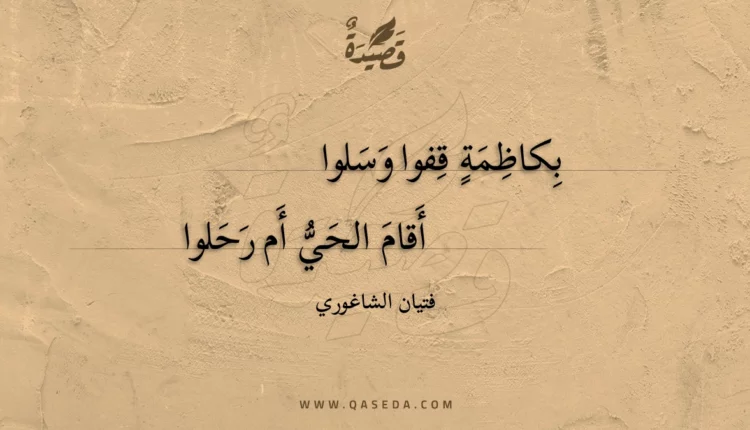 قَصِيدَةٌ
بِكاظِمَةٍ قِفوا وَسَلوا
أَقامَ الحَيُّ أَم رَحَلوا
فتيان الشاغوري
WWW.QASEDA.COM